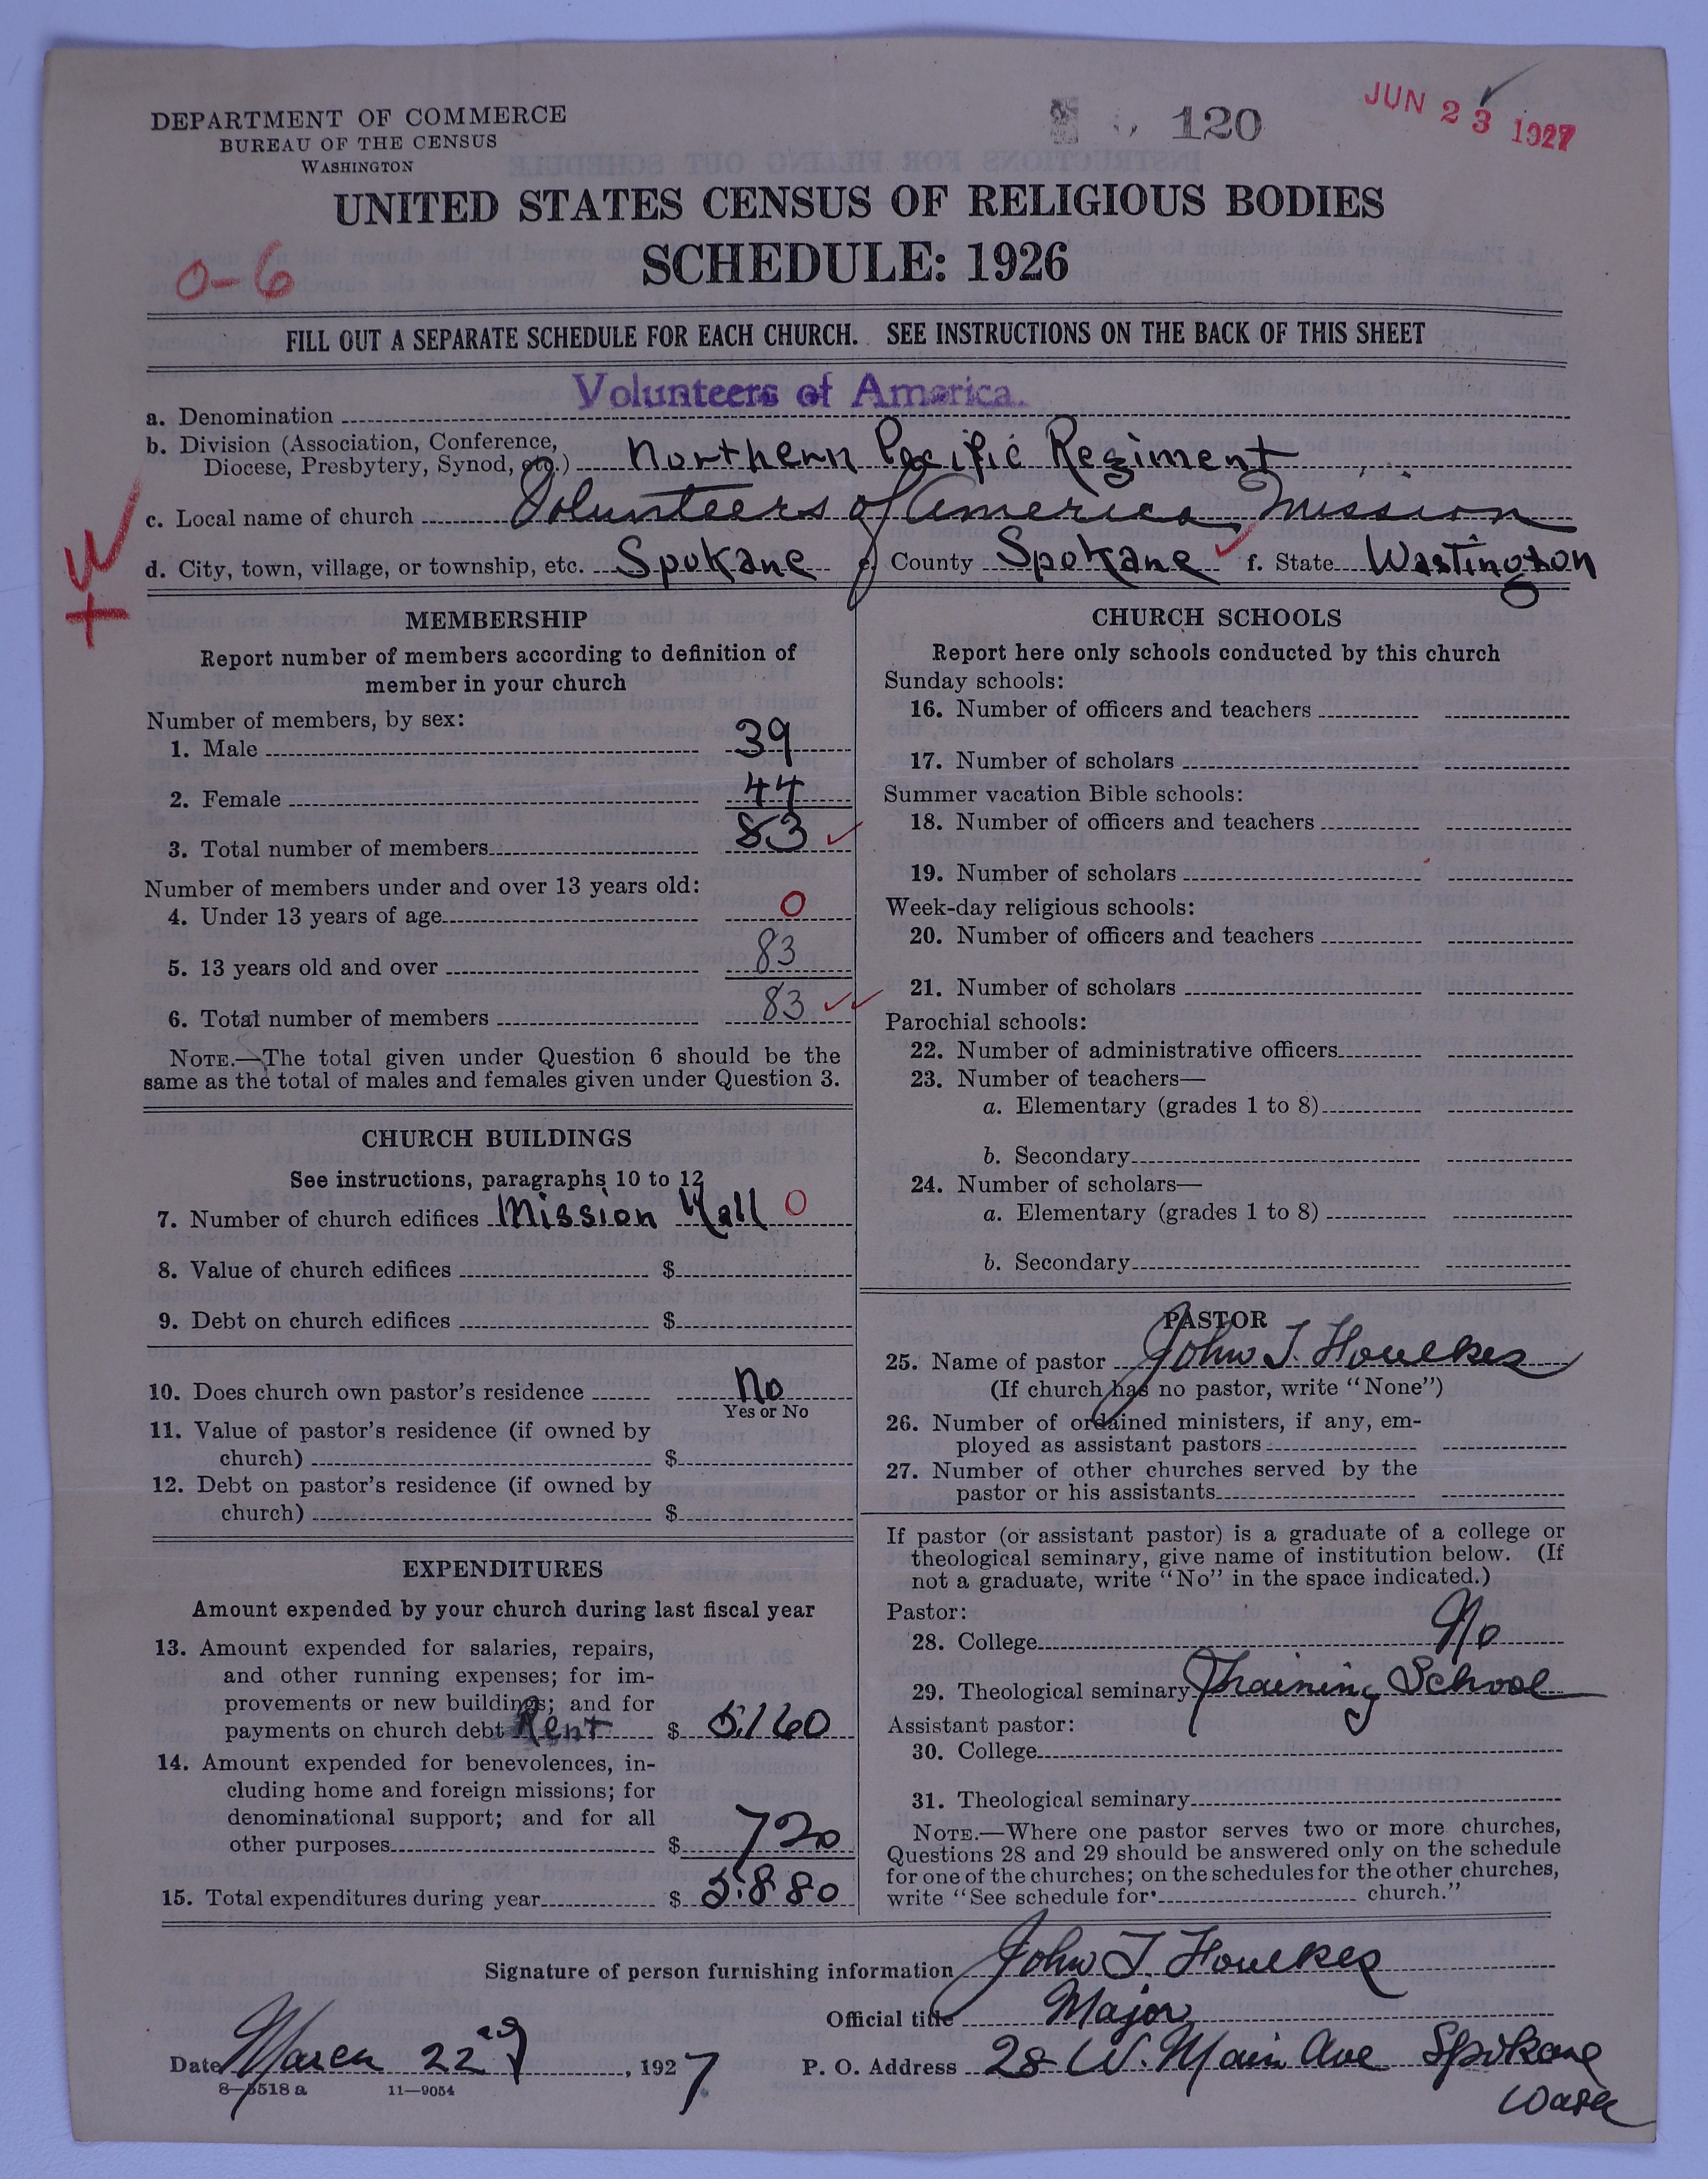 DEPARTMENT OF COMMERCE
BUREAU OF THE CENSUS
WASHINGTON
120
JUN 23 1927
UNITED STATES CENSUS OF RELIGIOUS BODIES
SCHEDULE: 1926
0-6
FILL OUT A SEPARATE SCHEDULE FOR EACH CHURCH. SEE INSTRUCTIONS ON THE BACK OF THIS SHEET
a. Denomination Volunteers of America.
b. Division (Association, Conference,
Diocese, Presbytery, Synod, etc.) Northern Pacific Regiment
c. Local name of church Volunteers of America Mission
d. City, town, village, or township, etc. Spokane e. County Spokane f. State Wastington
MEMBERSHIP
Report number of members according to definition of
member in your church
Number of members, by sex:
1. Male 39
2. Female 44
3. Total number of members 83
Number of members under and over 13 years old:
4. Under 13 years of age 0
5. 13 years old and over 83
6. Total number of members 83
NOTE.—The total given under Question 6 should be the
same as the total of males and females given under Question 3.
CHURCH BUILDINGS
See instructions, paragraphs 10 to 12
7. Number of church edifices Mission Hall 0
8. Value of church edifices $
9. Debt on church edifices $
10. Does church own pastor's residence No
Yes or No
11. Value of pastor's residence (if owned by
church) $
12. Debt on pastor's residence (if owned by
church) $
EXPENDITURES
Amount expended by your church during last fiscal year
13. Amount expended for salaries, repairs,
and other running expenses; for im-
provements or new buildings; and for
payments on church debt Rent $ 5160
14. Amount expended for benevolences, in-
cluding home and foreign missions; for
denominational support; and for all
other purposes $ 720
15. Total expenditures during year $ 5880
CHURCH SCHOOLS
Report here only schools conducted by this church
Sunday schools:
16. Number of officers and teachers
17. Number of scholars
Summer vacation Bible schools:
18. Number of officers and teachers
19. Number of scholars
Week-day religious schools:
20. Number of officers and teachers
21. Number of scholars
Parochial schools:
22. Number of administrative officers
23. Number of teachers—
a. Elementary (grades 1 to 8)
b. Secondary
24. Number of scholars—
a. Elementary (grades 1 to 8)
b. Secondary
PASTOR
25. Name of pastor John T. Houlkes
(If church has no pastor, write "None")
26. Number of ordained ministers, if any, em-
ployed as assistant pastors
27. Number of other churches served by the
pastor or his assistants
If pastor (or assistant pastor) is a graduate of a college or
theological seminary, give name of institution below. (If
not a graduate, write "No" in the space indicated.)
Pastor:
28. College No
29. Theological seminary Training School
Assistant pastor:
30. College
31. Theological seminary
NOTE.—Where one pastor serves two or more churches,
Questions 28 and 29 should be answered only on the schedule
for one of the churches; on the schedules for the other churches,
write "See schedule for church."
Signature of person furnishing information John T. Houlkes
Official title Major
Date March 22nd, 1927 P. O. Address 28 W. Main Ave Spokane
Wash
8—5518 a 11—9054